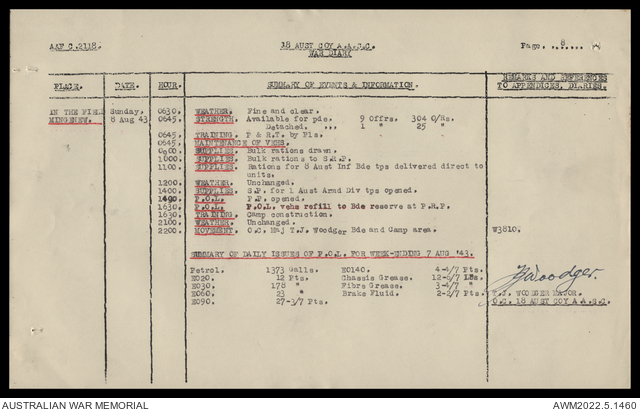 AAF C.2118. 18 AUST COY A.A.S.C. Page. 8
WAR DIARY
PLACE. DATE. HOUR. SUMMARY OF EVENTS & INFORMATION. REMARKS AND REFERENCES
TO APPENDICES, DIARIES.
IN THE FIELD Sunday. 0630. WEATHER. Fine and clear.
MINGENEW. 8 Aug 43 0645. STRENGTH. Available for pde. 9 Offrs. 304 O/Rs.
Detached. ,,, 1 " 25 "
0645. TRAINING. P & R.T. by Pls.
0645. MAINTENANCE OF VEHS.
0800. SUPPLIES. Bulk rations drawn.
1000. SUPPLIES. Bulk rations to S.R.P.
1100. SUPPLIES. Rations for 8 Aust Inf Bde tps delivered direct to
units.
1200. WEATHER. Unchanged.
1400. SUPPLIES. S.P. for 1 Aust Armd Div tps opened.
1400. P.O.L. P.P. opened.
1630. P.O.L. P.O.L. vehs refill to Bde reserve at P.R.P.
1630. TRAINING. Camp construction.
2100. WEATHER. Unchanged.
2200. MOVEMENT. O.C. Maj T.J. Woodger Bde and Camp area. W3810.
SUMMARY OF DAILY ISSUES OF P.O.L. FOR WEEK-ENDING 7 AUG '43.
Petrol. 1373 Galls. E0140. 4-4/7 Pts.
E020. 12 Pts. Chassis Grease. 12-6/7 Lbs
E030. 178 " Fibre Grease. 3-4/7 "
E060. 23 " Brake Fluid. 2-2/7 Pts.
E090. 27-3/7 Pts.
TJWoodger.
T.J. WOODGER MAJOR.
O.C. 18 AUST COY A.A.S.C.
AUSTRALIAN WAR MEMORIAL AWM2022.5.1460